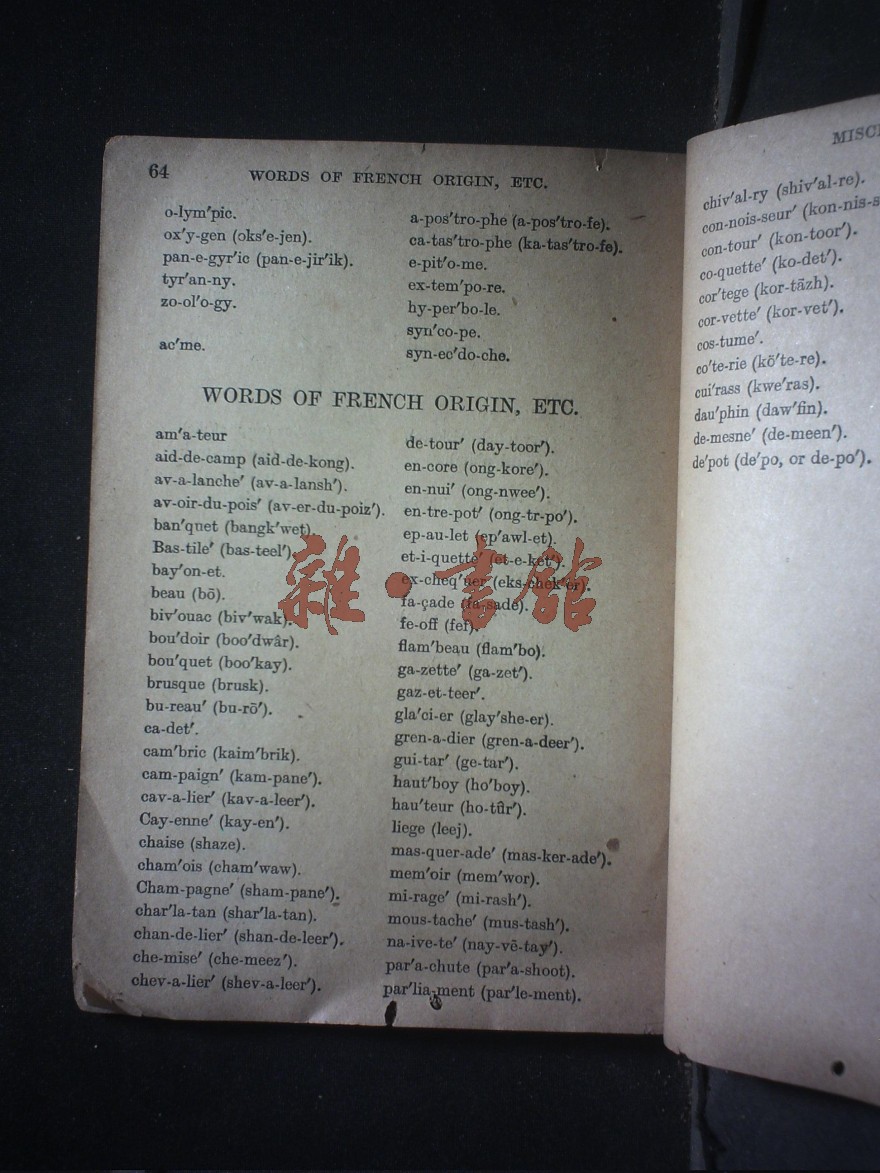 64
WORDS OF FRENCH ORIGIN, ETC.
o-lym′pic.
ox′y-gen (oks′e-jen).
pan-e-gyr′ic (pan-e-jir′ik).
tyr′an-ny.
zo-ol′o-gy.
ac′me.
a-pos′tro-phe (a-pos′tro-fe).
ca-tas′tro-phe (ka-tas′tro-fe).
e-pit′o-me.
ex-tem′po-re.
hy-per′bo-le.
syn′co-pe.
syn-ec′do-che.
WORDS OF FRENCH ORIGIN, ETC.
am′a-teur
aid-de-camp (aid-de-kong).
av-a-lanche′ (av-a-lansh′).
av-oir-du-pois′ (av-er-du-poiz′).
ban′quet (bangk′wet).
Bas-tile′ (bas-teel′).
bay′on-et.
beau (bō).
biv′ouac (biv′wak).
bou′doir (boo′dwâr).
bou′quet (boo′kay).
brusque (brusk).
bu-reau′ (bu-rō′).
ca-det′.
cam′bric (kaim′brik).
cam-paign′ (kam-pane′).
cav-a-lier′ (kav-a-leer′).
Cay-enne′ (kay-en′).
chaise (shaze).
cham′ois (cham′waw).
Cham-pagne′ (sham-pane′).
char′la-tan (shar′la-tan).
chan-de-lier′ (shan-de-leer′).
che-mise′ (che-meez′).
chev-a-lier′ (shev-a-leer′).
de-tour′ (day-toor′).
en-core (ong-kore′).
en-nui′ (ong-nwee′).
en-tre-pot′ (ong-tr-po′).
ep-au-let (ep′awl-et).
et-i-quette′ (et-e-ket′).
ex-cheq′uer (eks-chek′er).
fa-çade (fa-sade).
fe-off (fef).
flam′beau (flam′bo).
ga-zette′ (ga-zet′).
gaz-et-teer′.
gla′ci-er (glay′she-er).
gren-a-dier (gren-a-deer′).
gui-tar′ (ge-tar′).
haut′boy (ho′boy).
hau′teur (ho-tûr′).
liege (leej).
mas-quer-ade′ (mas-ker-ade′).
mem′oir (mem′wor).
mi-rage′ (mi-rash′).
mous-tache′ (mus-tash′).
na-ive-te′ (nay-vē-tay′).
par′a-chute (par′a-shoot).
par′lia-ment (par′le-ment).
雜·書館
chiv′al-ry (shiv′al-re).
con-nois-seur′ (kon-nis-s
con-tour′ (kon-toor′).
co-quette′ (ko-det′).
cor′tege (kor-tāzh).
cor-vette′ (kor-vet′).
cos-tume′.
co′te-rie (kō′te-re).
cui′rass (kwe′ras).
dau′phin (daw′fin).
de-mesne′ (de-meen′).
de′pot (de′po, or de-po′).